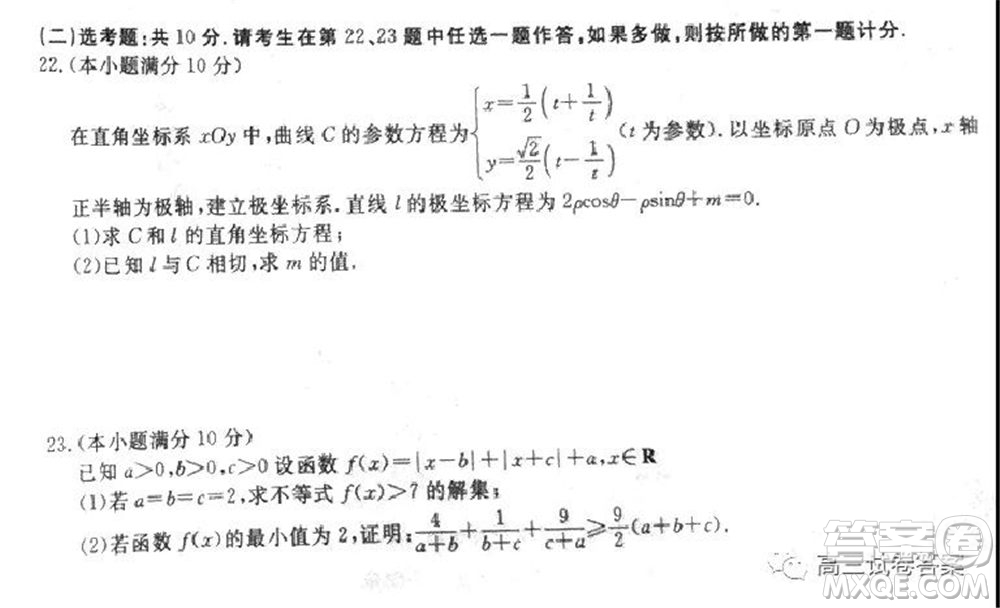 (二)选考题:共10分.请考生在第22、23题中任选一题作答,如果多做,则按所做的第一题计分.
22.(本小题满分10分)
在直角坐标系xOy中,曲线C的参数方程为{x=1/2(t+1/t) y=√2/2(t-1/t) (t为参数).以坐标原点O为极点,x轴
正半轴为极轴,建立极坐标系.直线l的极坐标方程为2ρcosθ-ρsinθ+m=0.
(1)求C和l的直角坐标方程;
(2)已知l与C相切,求m的值.
23.(本小题满分10分)
已知a>0,b>0,c>0设函数f(x)=|x-b|+|x+c|+a,x∈R
(1)若a=b=c=2,求不等式f(x)>7的解集;
(2)若函数f(x)的最小值为2,证明:4/(a+b)+1/(b+c)+9/(c+a)≥9/2(a+b+c).
高三试卷答案
答案圈
MXQE.COM